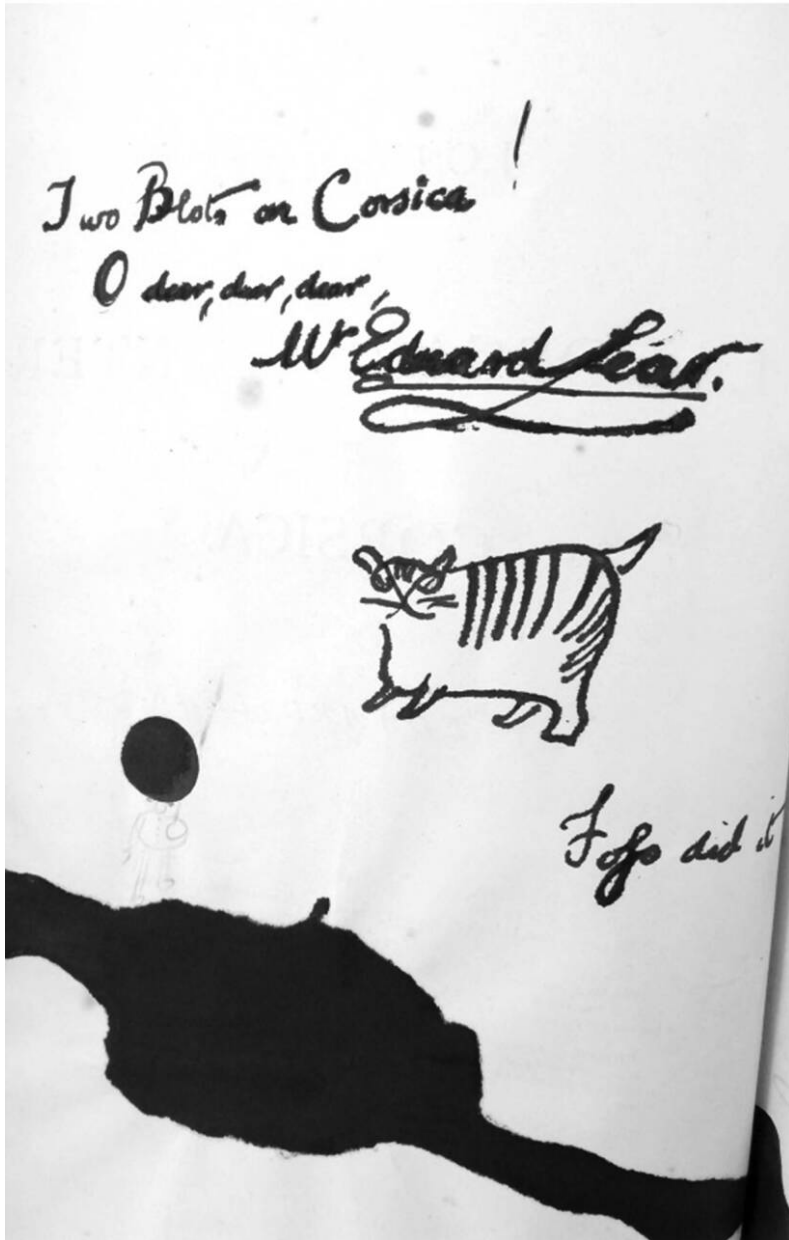 Two Blots on Corsica!
O dear, dear, dear,
Mr Edward Lear.
Foss did it